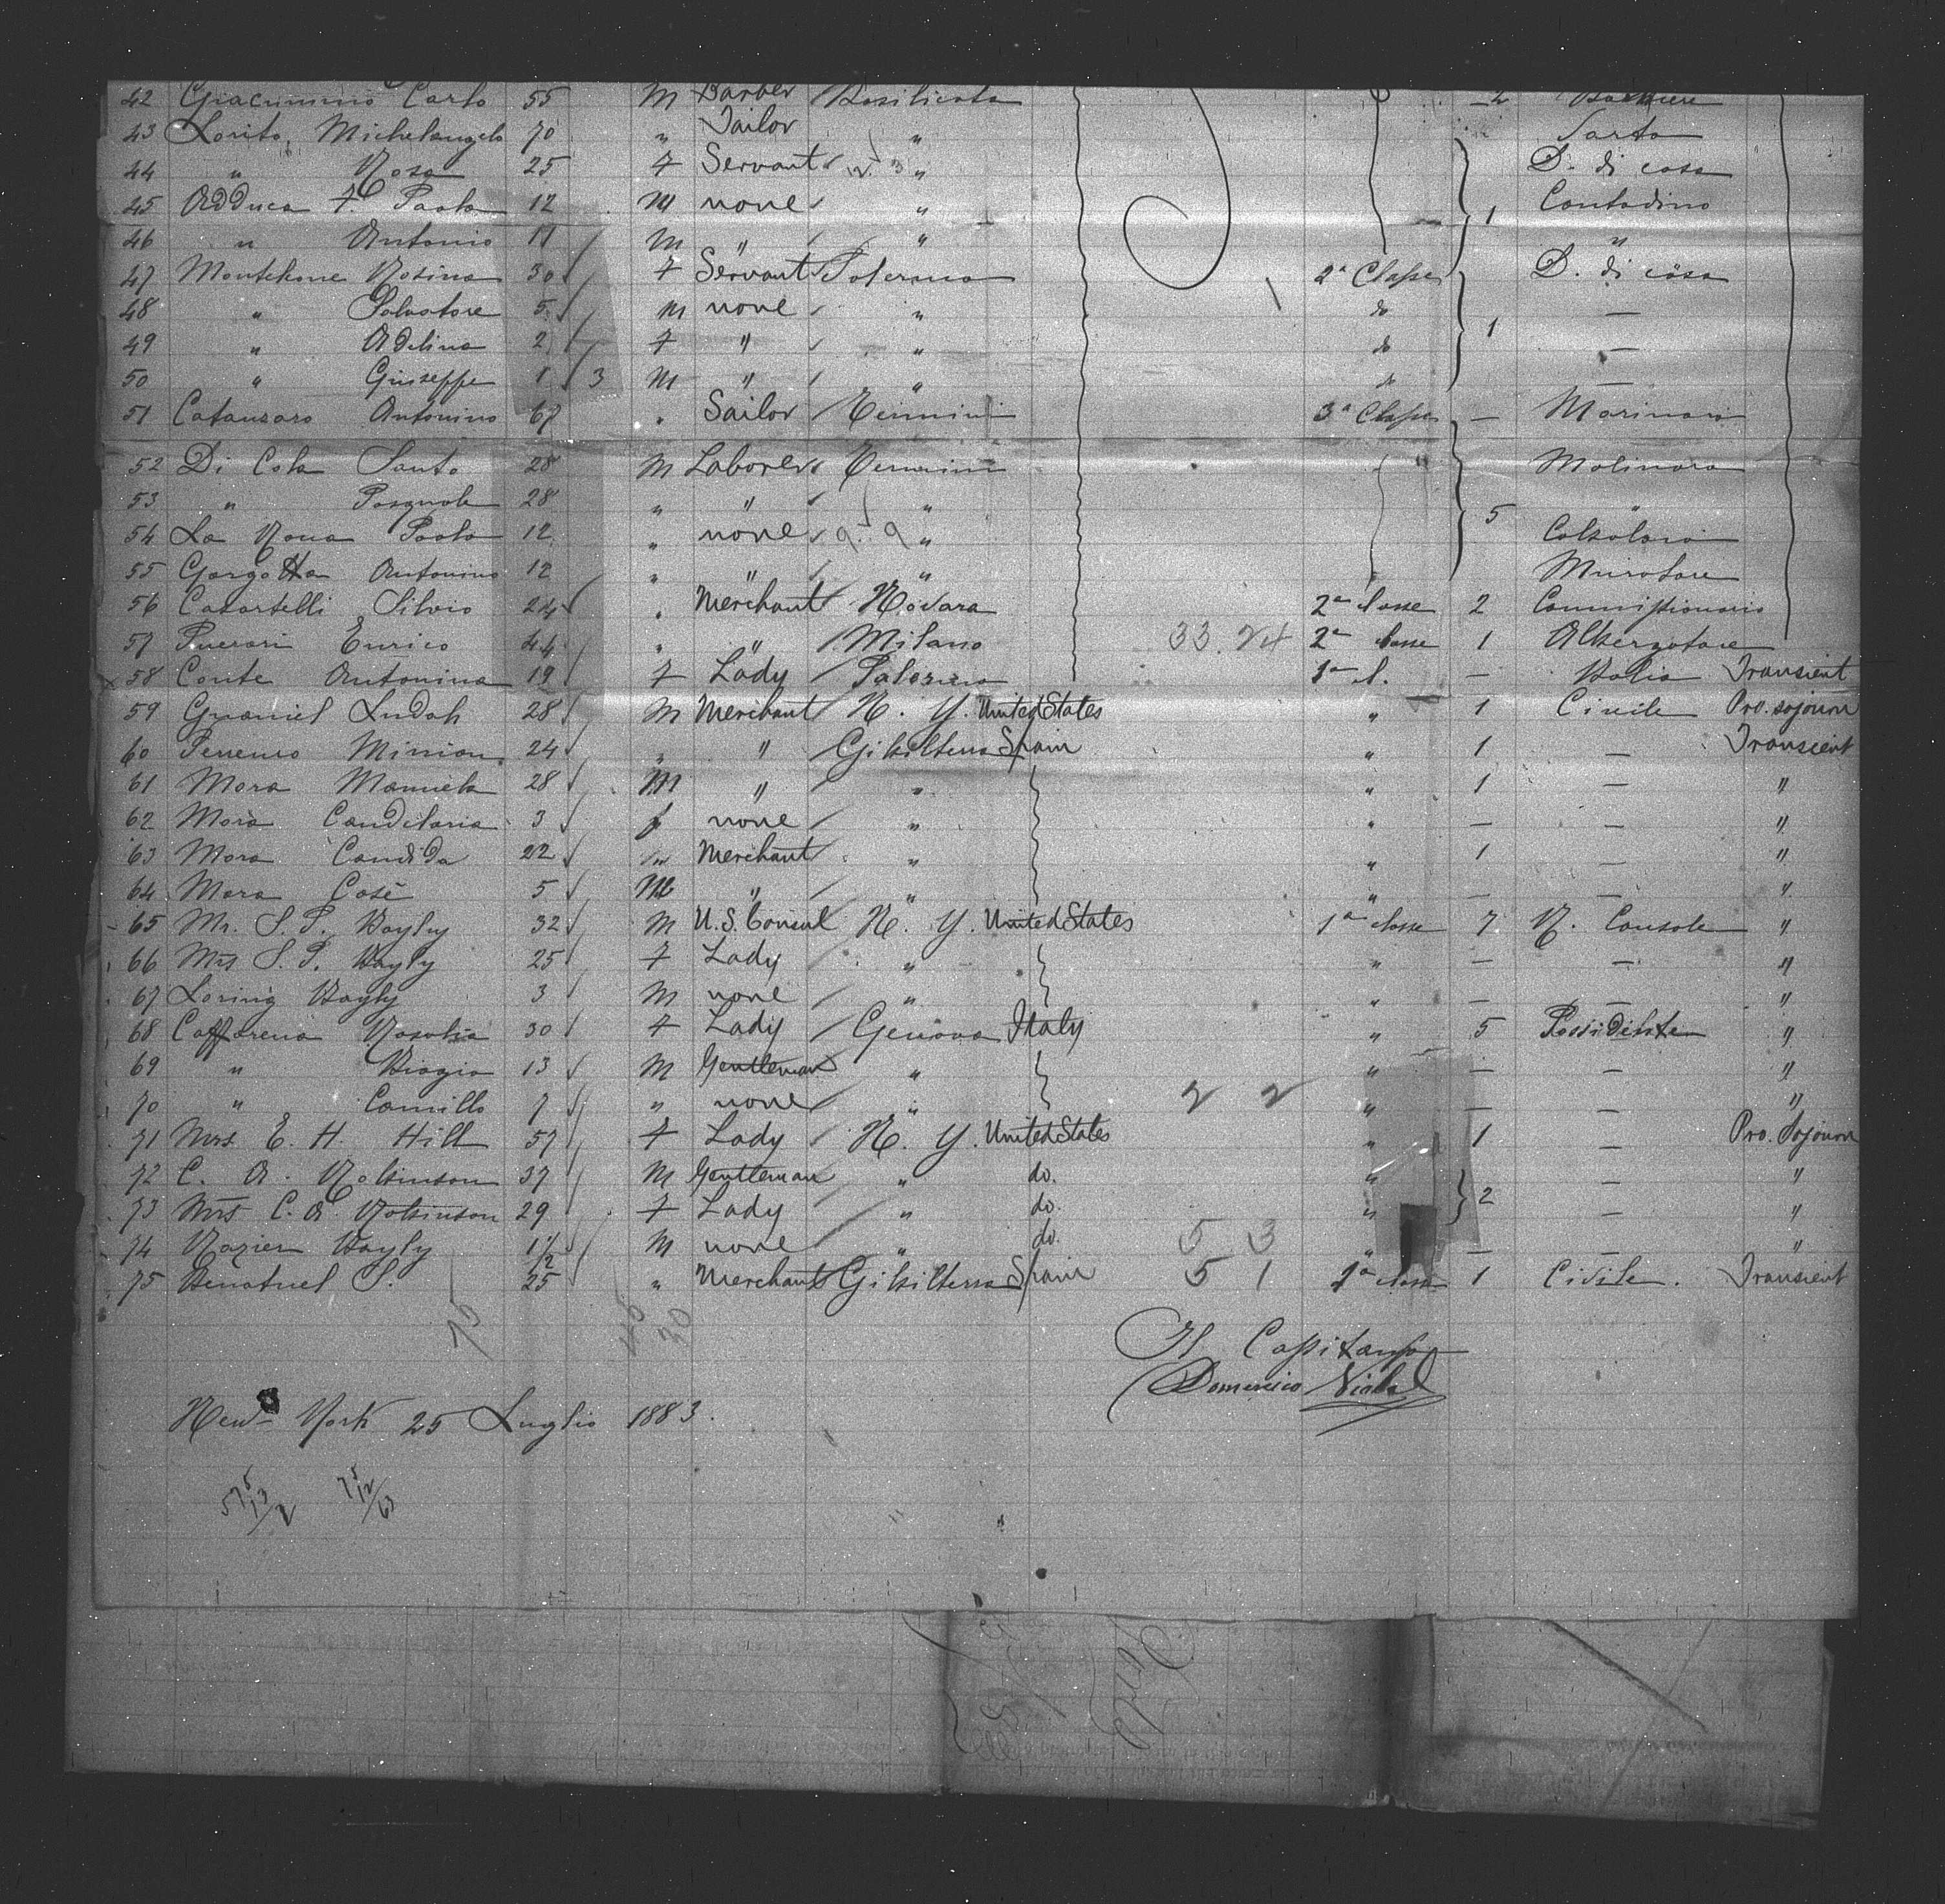 42 Giacummo Carlo 55 M Barber Basilicata 2 Barbiere
43 Lorito Michelangelo 70 " Tailor " Sarto
44 " Rosa 25 F Servant " D. di casa
45 Adduca F. Paolo 12 M none " 1 Contadino
46 " Antonio 11 M " " "
47 Monteleone Rosina 30 F Servant Palermo 2a Classe D. di casa
48 " Salvatore 5 M none " do —
49 " Adelina 2 F " " do 1 —
50 " Giuseppe 1 3 M " " do —
51 Catanzaro Antonino 67 " Sailor Termini 3a Classe — Marinaio
52 Di Cola Santo 28 M Laborer Termini Molinaro
53 " Pasquale 28 " " " 5 "
54 La Rona Paolo 12 " none " Calzolaio
55 Gargotta Antonino 12 " " " Muratore
56 Casartelli Silvio 24 " Merchant Novara 2a classe 2 Commissionario
57 Puerari Enrico 44 " " Milano 33. 24 2a classe 1 Albergatore
58 Conte Antonina 19 F Lady Palermo 1a cl. — Italia Transient
59 Graniel Ludoh 28 M Merchant N. Y. United States " 1 Civile Pro. sojourn
60 24 " " Gibilterra Spain " 1 — Transient
61 Mora Manuela 28 M " " " 1 — "
62 Mora Candelaria 3 f none " " — — "
63 Mora Candida 22 Merchant " " 1 — "
64 Mora Cosè 5 M " " " — — "
65 Mr. S. P. Bayly 32 M U.S. Consul N. Y. United States 1a classe 7 R. Console "
66 Mrs S. P. Bayly 25 F Lady " " — — "
67 Loring Bayly 3 M none " " — — "
68 Caffarena Rosalia 30 F Lady Genova Italy " 5 Possidente "
69 " Biagio 13 M Gentleman " " — — "
70 " Camillo 7 " none " 2 2 " — — "
71 Mrs. E. H. Hill 57 F Lady N. Y. United States " 1 — Pro. Sojourn
72 C. A. Robinson 37 M Gentleman " do. " — "
73 Mrs C. A. Robinson 29 F Lady " do. " 2 — "
74 Rozier Bayly 1 1/2 M none " do. 5 3 " — — "
75 Benatuel S. 25 " Merchant Gibilterra Spain 5 1 1a classe 1 Civile. Transient
75
Il Capitano
Domenico Viola
New York 25 Luglio 1883.